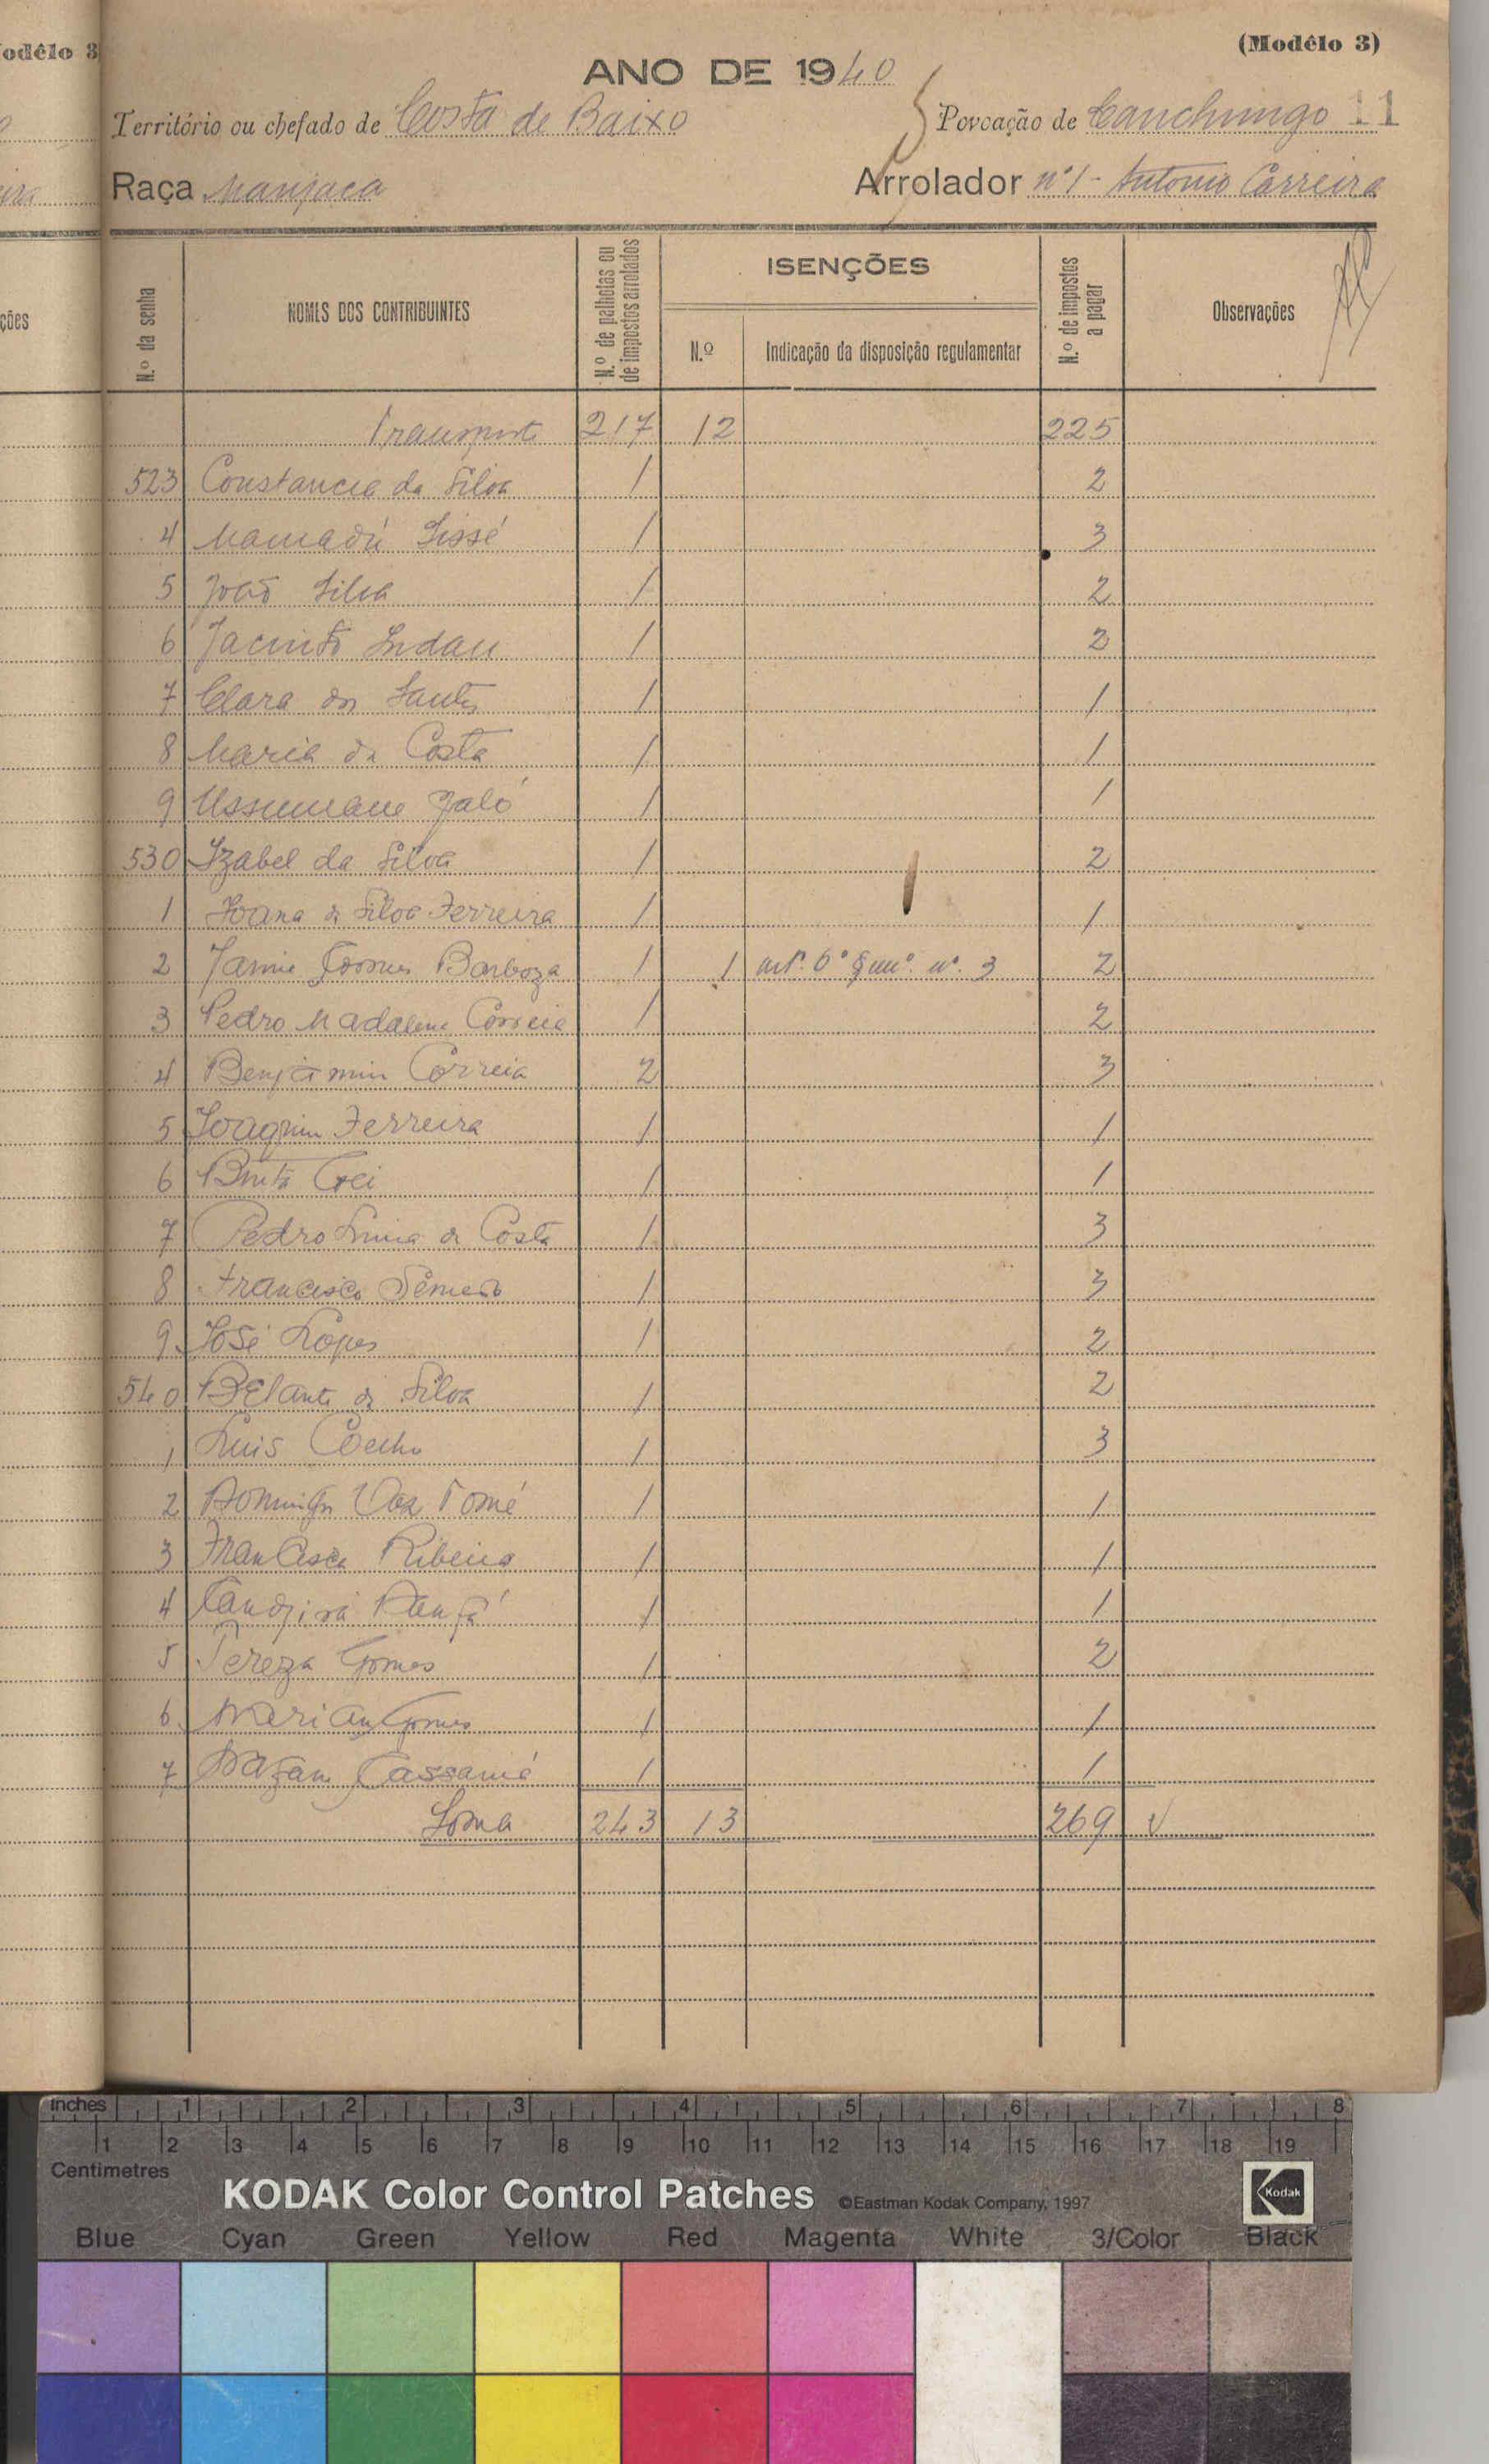 odêlo 3
ções
(Modêlo 3)
ANO DE 1940
Território ou chefado de Costa de Baixo
Povoação de Canchungo 11
Raça Manjaca
Arrolador nº 1 - Antonio Carreira
N.º da senha
NOMES DOS CONTRIBUINTES
N.º de palhotas ou de impostos arrolados
ISENÇÕES
N.º
Indicação da disposição regulamentar
N.º de impostos a pagar
Observações
Transporte 217 12 225
523 Constancia da Silva 1 2
4 Mamadú Sissé 1 3
5 João Silva 1 2
6 Jacinto Indau 1 2
7 Clara dos Santos 1 1
8 Maria da Costa 1 1
9 Ussumane Jaló 1 1
530 Izabel da Silva 1 2
1 Joana da Silva Ferreira 1 1
2 Jaime Gomes Barboza 1 1 artº. 6º § unº. nº. 3 2
3 Pedro Madalena Correia 1 2
4 Benjamim Correia 2 3
5 Joaquim Ferreira 1 1
6 1 1
7 Pedro da Costa 1 3
8 Francisco 1 3
9 José Lopes 1 2
540 da Silva 1 2
1 Luis Coelho 1 3
2 Domingos Vaz Tomé 1 1
3 Francisca Ribeiro 1 1
4 1 1
5 Tereza Gomes 1 2
6 Maria Gomes 1 1
7 Cassamá 1 1
Soma 243 13 269
inches 1 2 3 4 5 6 7 8
1 2 3 4 5 6 7 8 9 10 11 12 13 14 15 16 17 18 19
Centimetres
KODAK Color Control Patches ©Eastman Kodak Company, 1997
Kodak
Blue Cyan Green Yellow Red Magenta White 3/Color Black